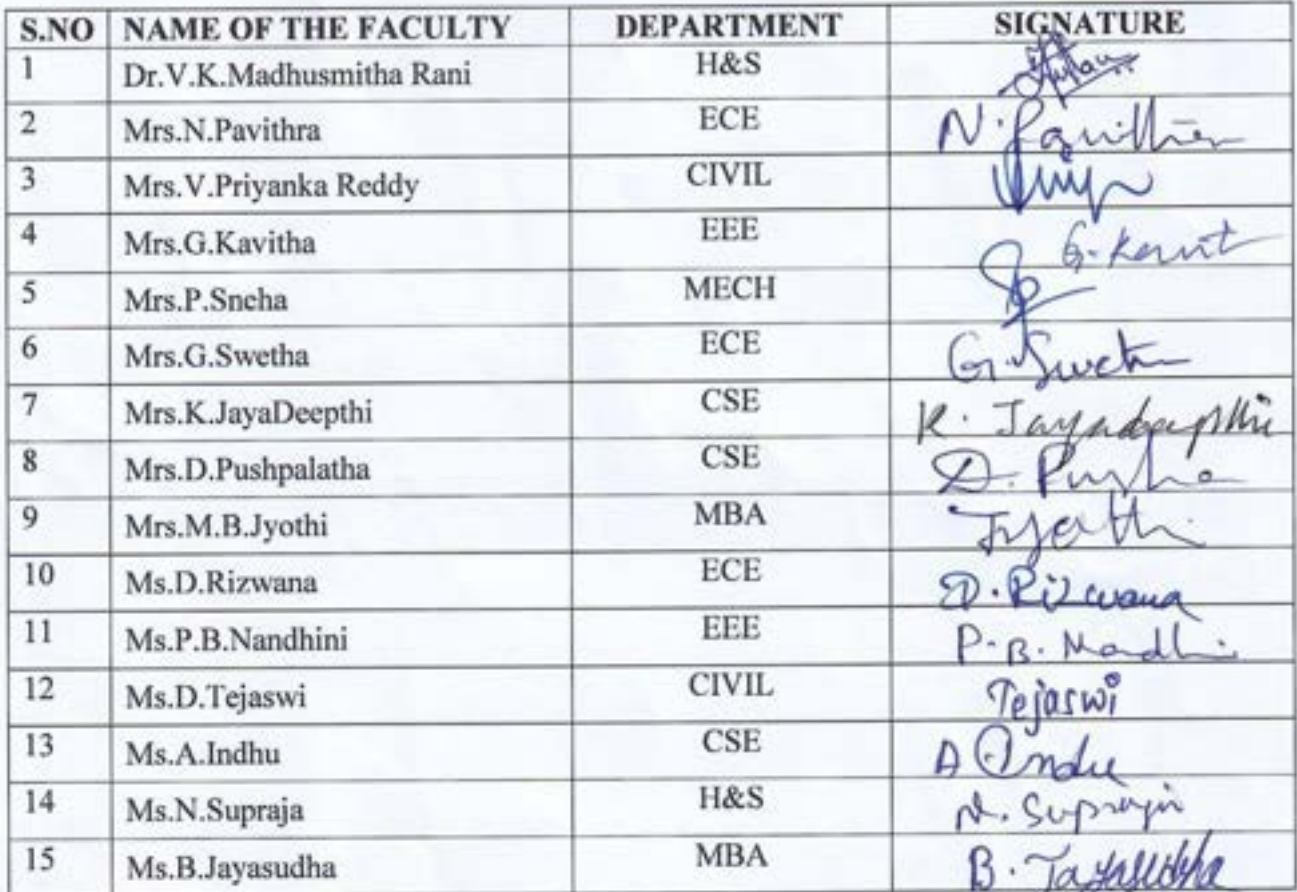 S.NO NAME OF THE FACULTY DEPARTMENT SIGNATURE
1 Dr.V.K.Madhusmitha Rani H&S
2 Mrs.N.Pavithra ECE N.Pavithra
3 Mrs.V.Priyanka Reddy CIVIL
4 Mrs.G.Kavitha EEE G.Kavit
5 Mrs.P.Sneha MECH
6 Mrs.G.Swetha ECE G.Swetha
7 Mrs.K.JayaDeepthi CSE K. Jayadeepthi
8 Mrs.D.Pushpalatha CSE D. Pushpa
9 Mrs.M.B.Jyothi MBA Jyothi
10 Ms.D.Rizwana ECE D.Rizwana
11 Ms.P.B.Nandhini EEE P.B. Nandhini
12 Ms.D.Tejaswi CIVIL Tejaswi
13 Ms.A.Indhu CSE A Indhu
14 Ms.N.Supraja H&S N. Supraja
15 Ms.B.Jayasudha MBA B. Jayasudha